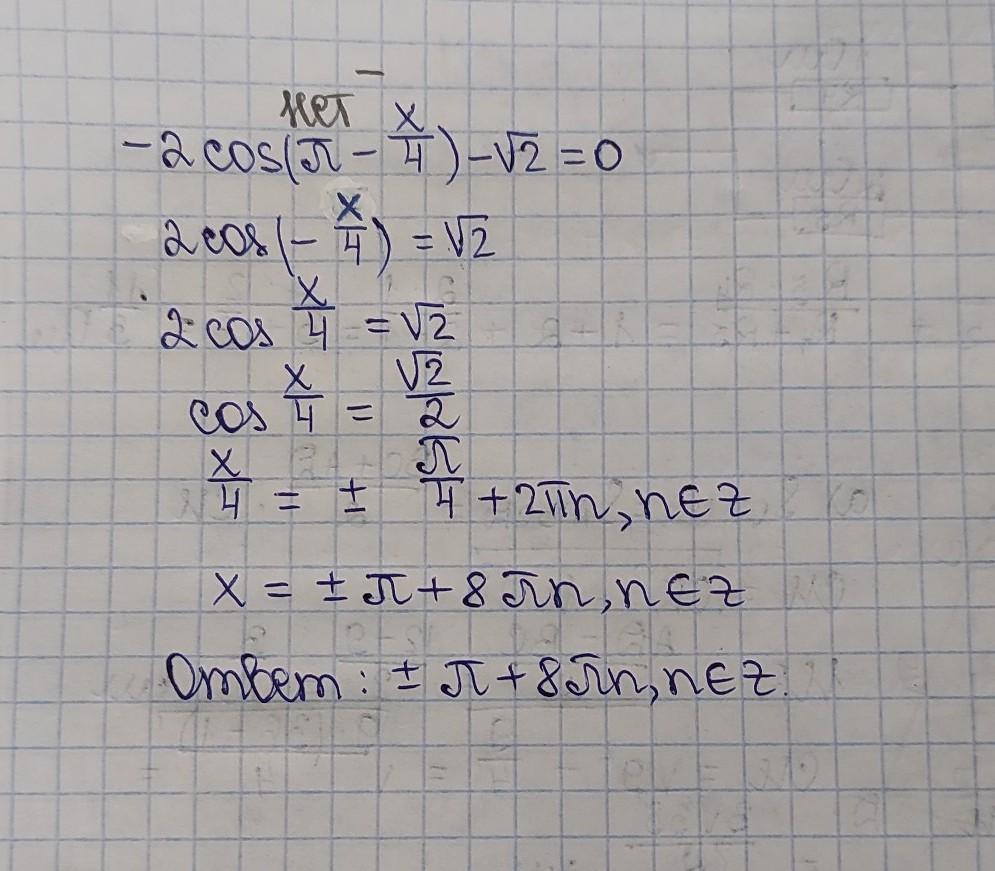 нет
-2cos(π - x/4) - √2 = 0
2cos(- x/4) = √2
2cos x/4 = √2
cos x/4 = √2/2
x/4 = ± π/4 + 2πn, n∈z
x = ± π + 8πn, n∈z
Ответ: ± π + 8πn, n∈z.